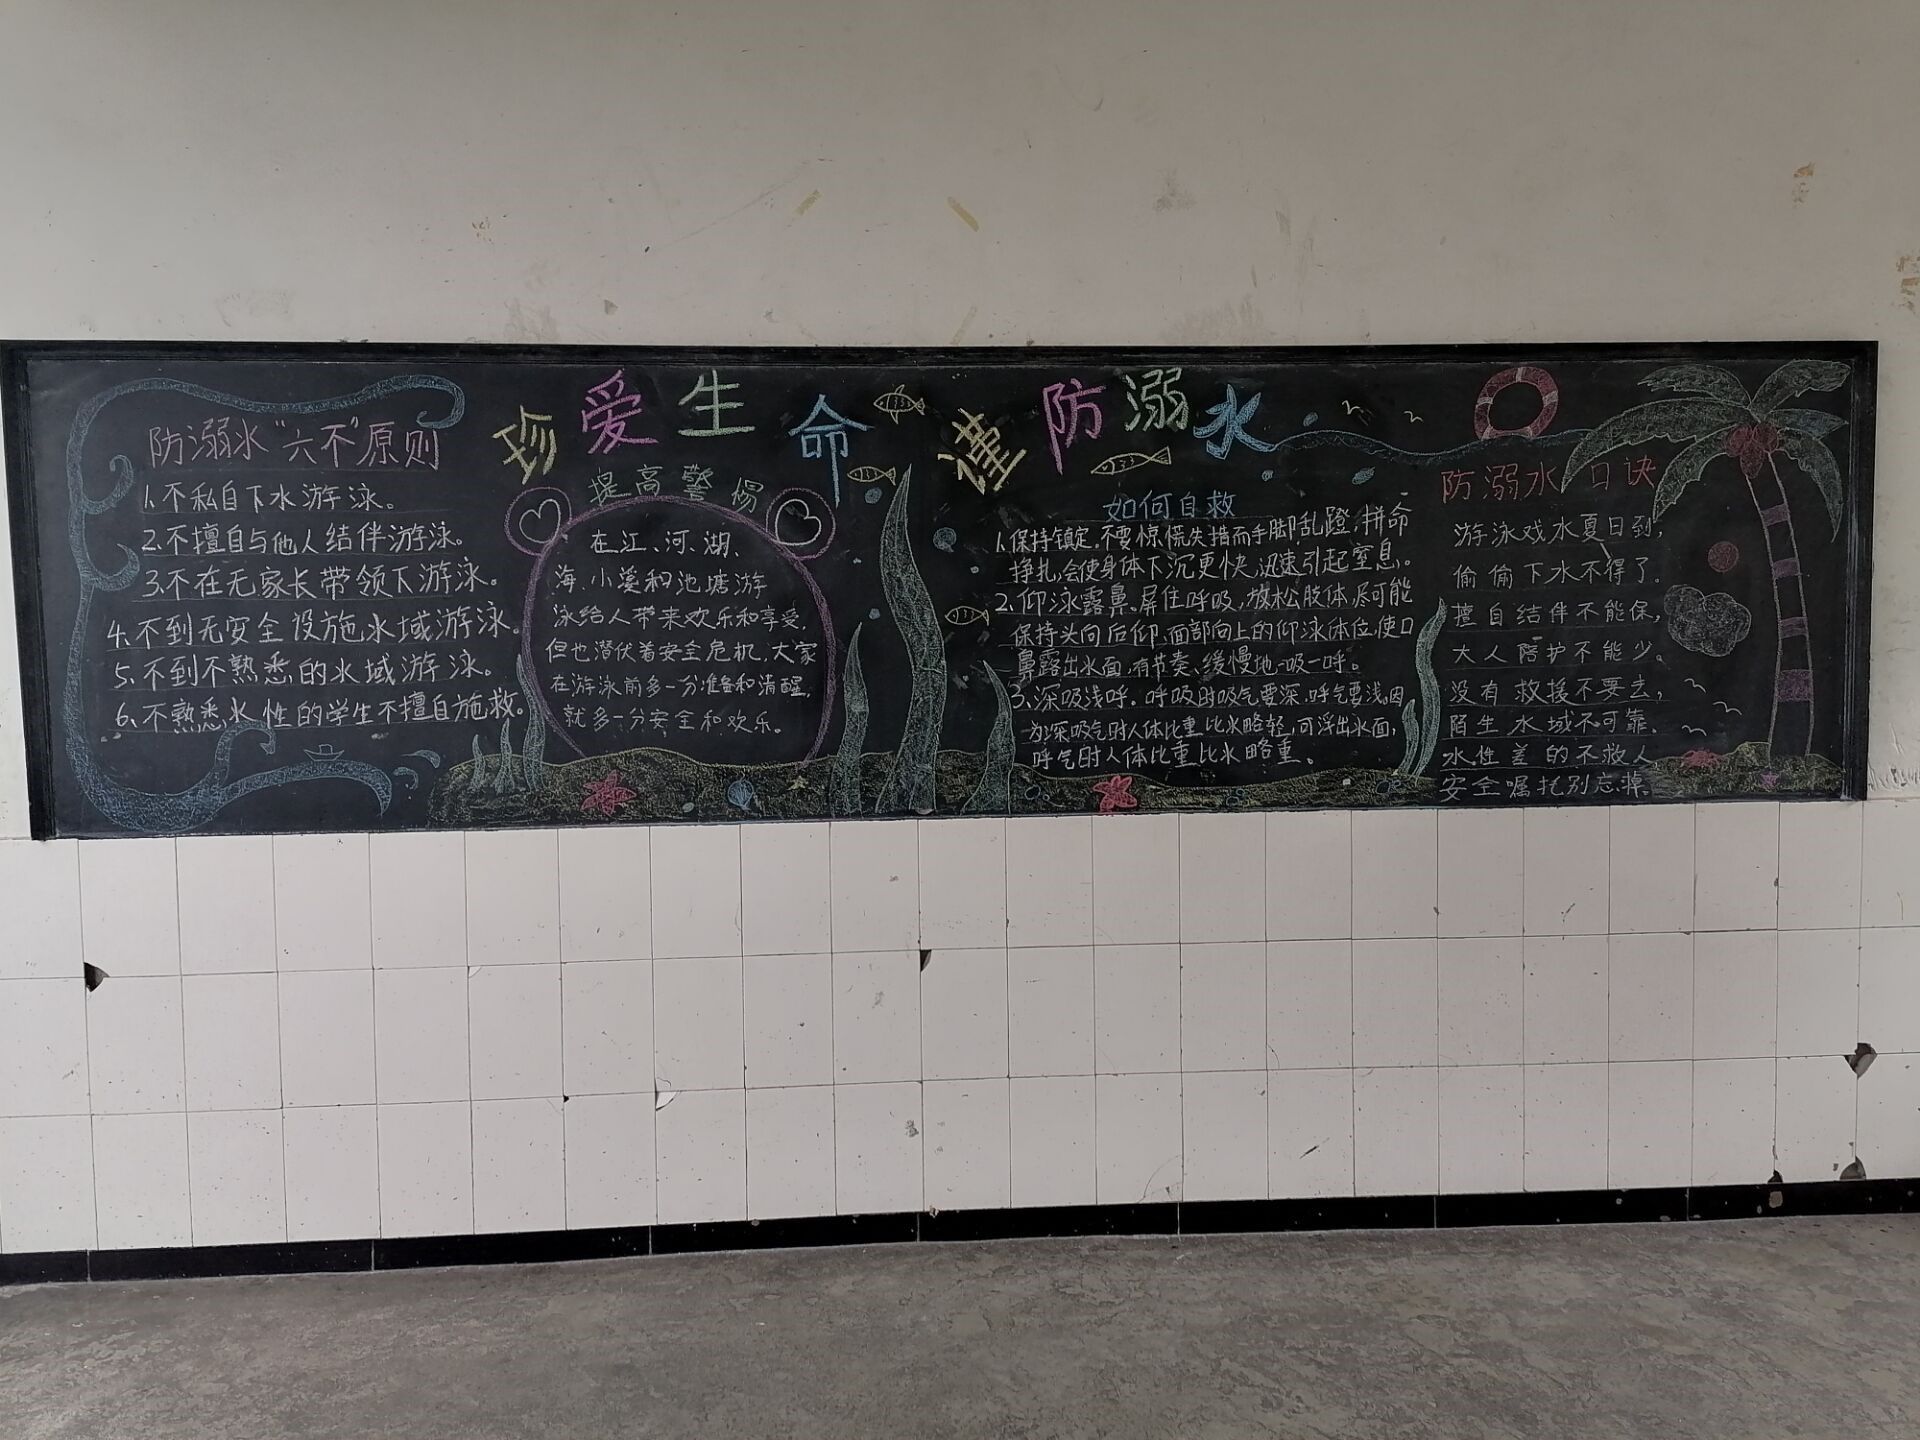 珍爱生命 谨防溺水
防溺水“六不”原则
1.不私自下水游泳。
2.不擅自与他人结伴游泳。
3.不在无家长带领下游泳。
4.不到无安全设施水域游泳。
5.不到不熟悉的水域游泳。
6.不熟悉水性的学生不擅自施救。
提高警惕
在江、河、湖、
海、小溪和池塘游
泳给人带来欢乐和享受,
但也潜伏着安全危机,大家
在游泳前多一分准备和清醒,
就多一分安全和欢乐。
如何自救
1.保持镇定,不要惊慌失措而手脚乱蹬,拼命
挣扎,会使身体下沉更快,迅速引起窒息。
2.仰泳露鼻。屏住呼吸,放松肢体,尽可能
保持头向后仰,面部向上的仰泳体位,使口
鼻露出水面,有节奏、缓慢地一吸一呼。
3.深吸浅呼。呼吸时吸气要深,呼气要浅,因
为深吸气时人体比重比水略轻,可浮出水面,
呼气时人体比重比水略重。
防溺水口诀
游泳戏水夏日到,
偷偷下水不得了。
擅自结伴不能保,
大人陪护不能少。
没有救援不要去,
陌生水域不可靠。
水性差的不救人
安全嘱托别忘掉。